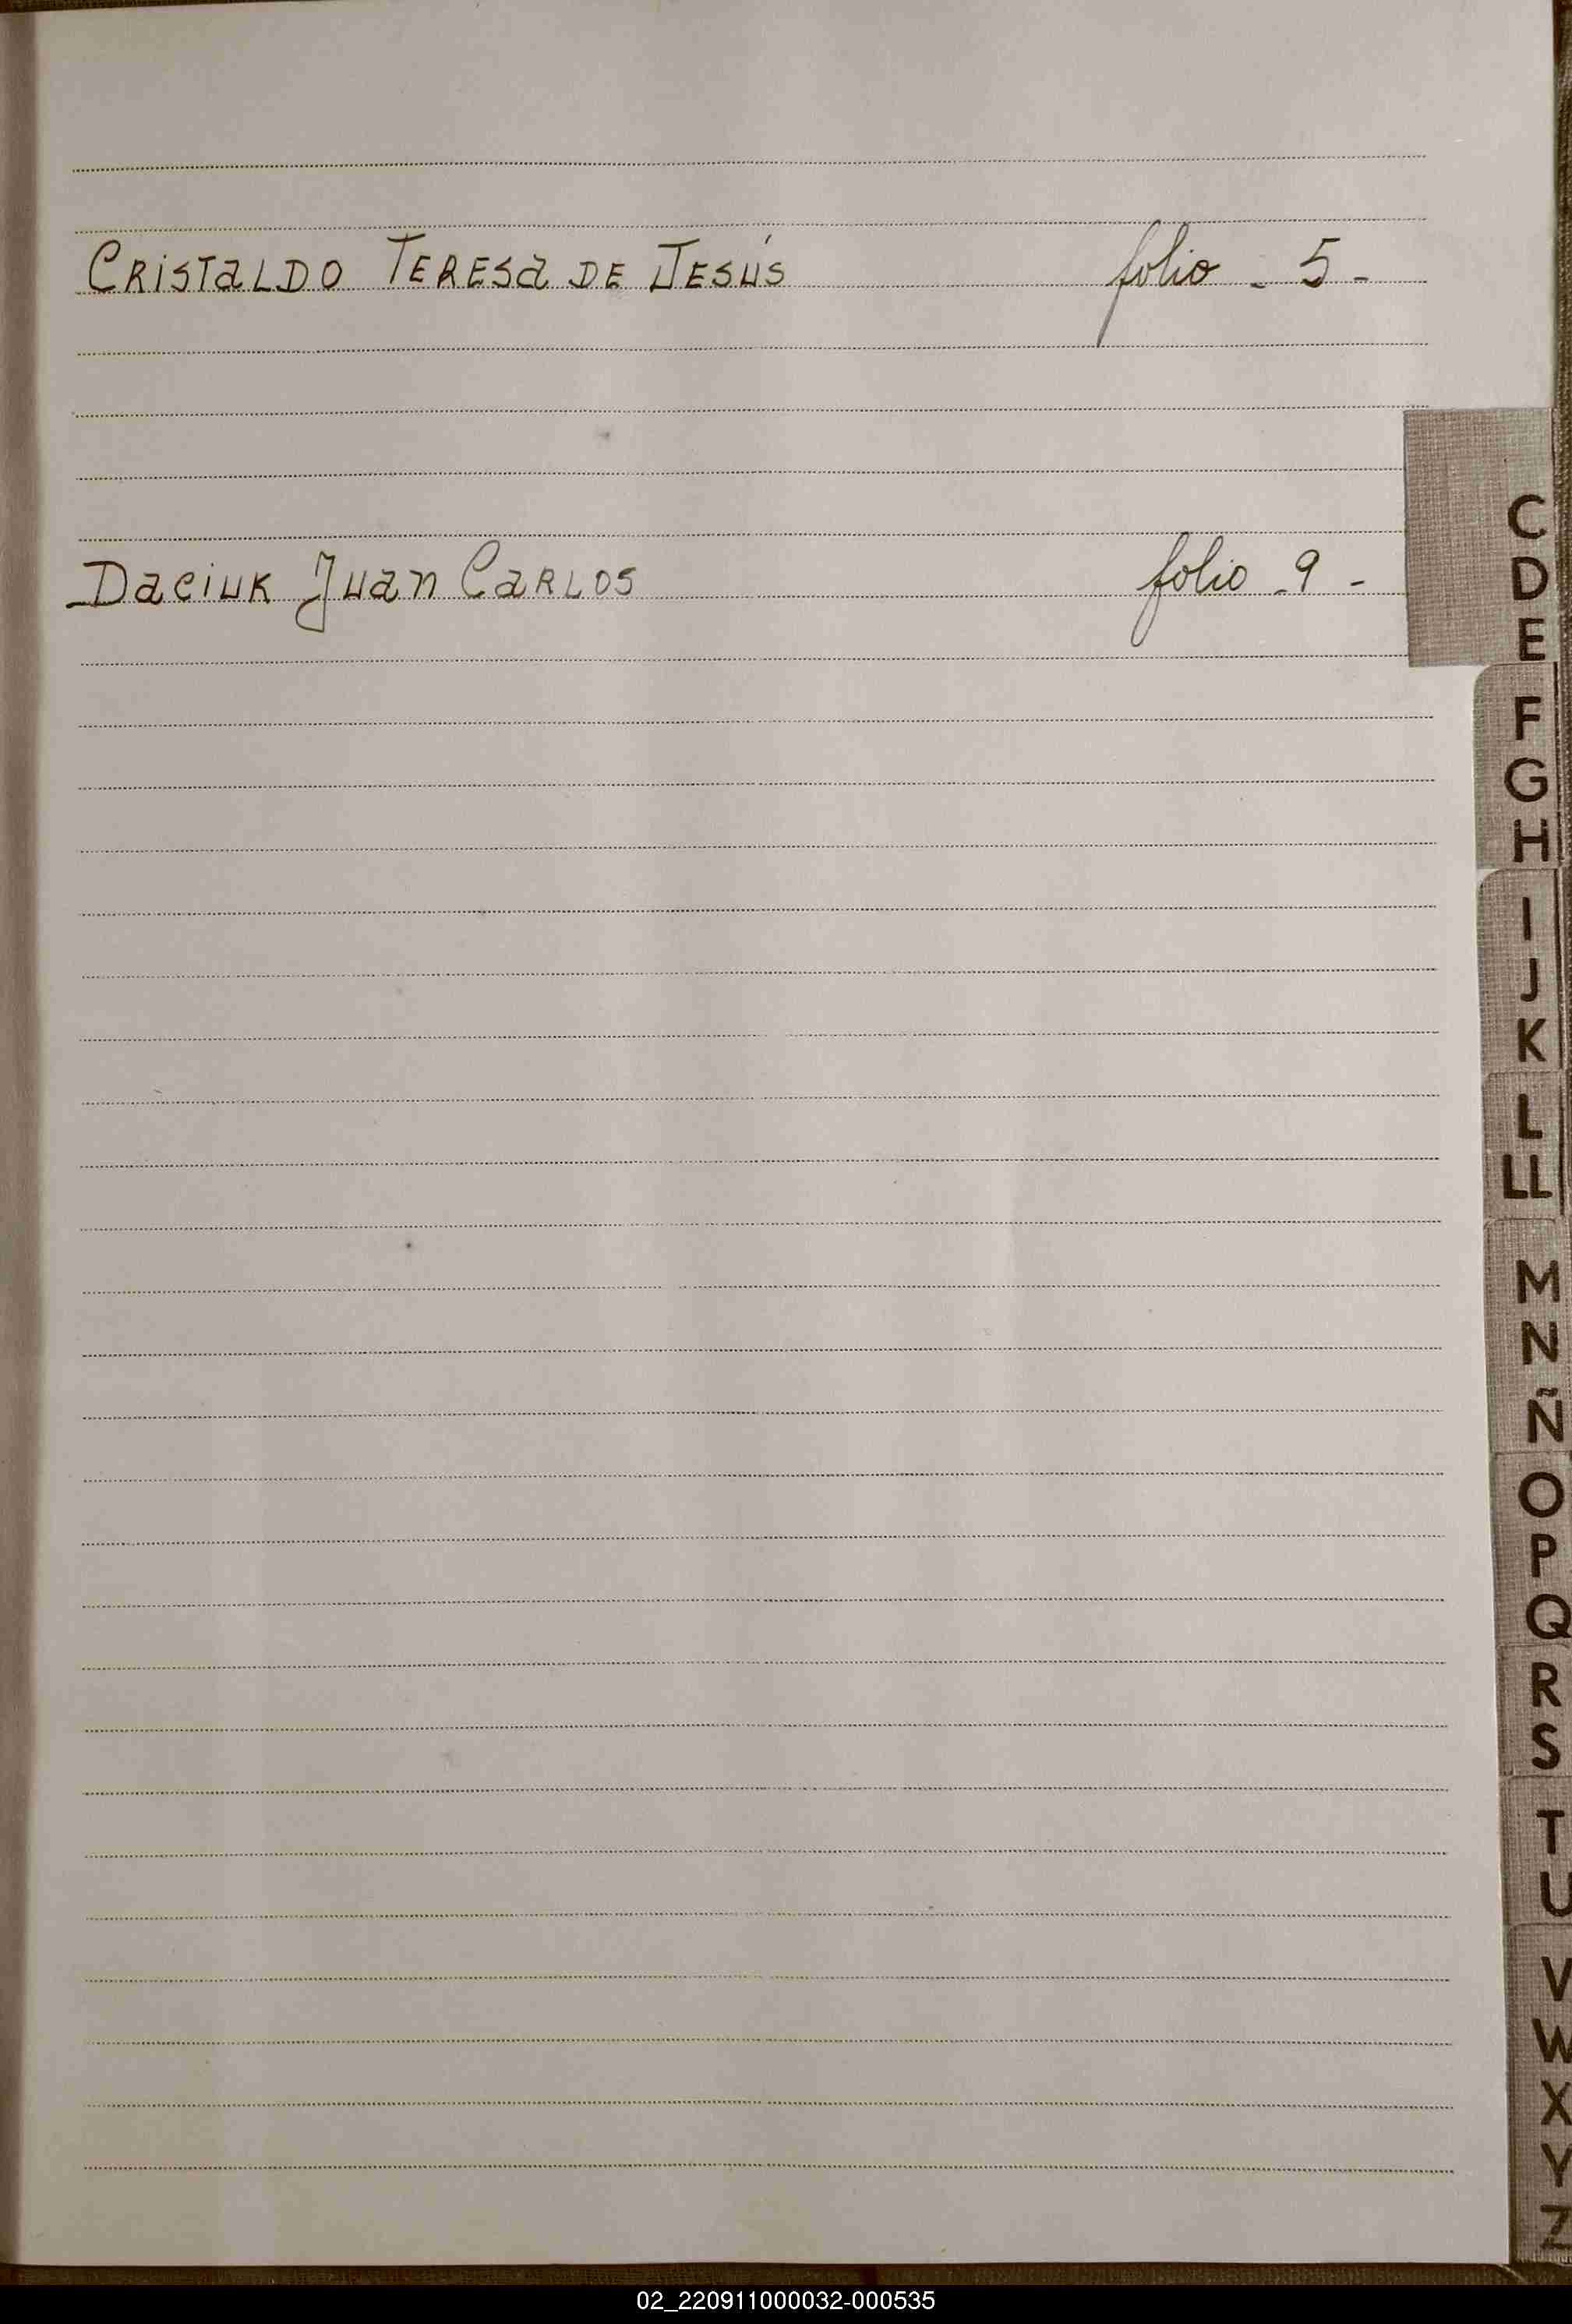 CRISTALDO TERESA DE JESÚS folio - 5 -
DACIUK JUAN CARLOS folio - 9 -
C
D
E
F
G
H
I
J
K
L
LL
M
N
Ñ
O
P
Q
R
S
T
U
V
W
X
Y
Z
02_220911000032-000535